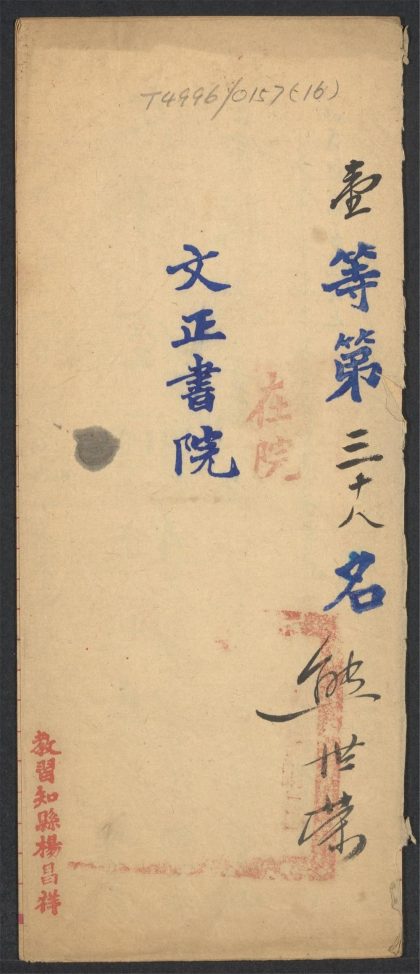 T4996/0157(16)
壹等第三十八名 熊世榮
在院
文正書院
教習知縣楊昌祥